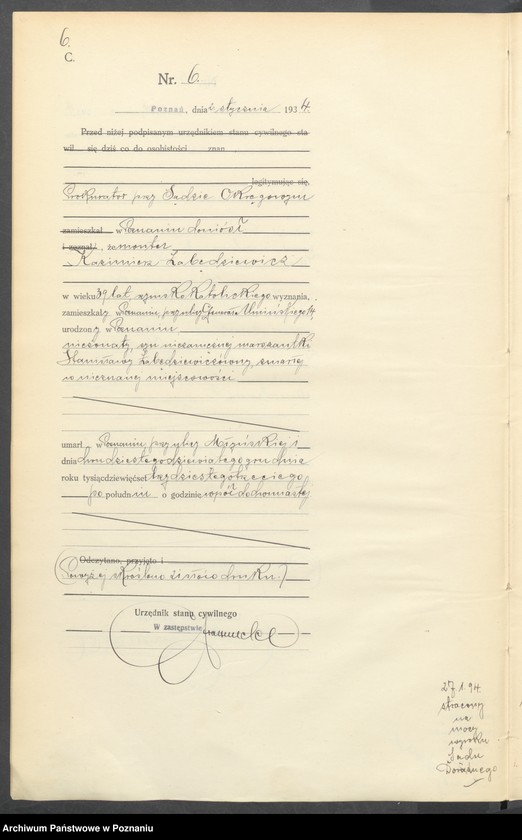 6.
C.
Nr. 6.
Poznań, dnia 2 stycznia 1934.
Przed niżej podpisanym urzędnikiem stanu cywilnego sta
wił się dziś co do osobistości znan
legitymując się,
Prokurator przy Sądzie Okręgowym
zamieszkał w Poznaniu doniósł
i zeznał, że monter
Kazimierz Łabędziewicz
w wieku 39 lat, rzymsko katolickiego wyznania,
zamieszkały w Poznaniu, przy ulicy Generała Umińskiego 14
urodzony w Poznaniu
nieżonaty, syn niezamężnej marszantki
Stanisławy Łabędziewiczówny, zmarłej
w nieznanej miejscowości
umarł w Poznaniu, przy ulicy Młyńskiej 1
dnia dwudziestego dziewiątego grudnia
roku tysiącdziewięćset trzydziestego trzeciego
po południu o godzinie wpół do dwunastej
Odczytano, przyjęto i
(Powyżej skreślono słowa druku.)
Urzędnik stanu cywilnego
W zastępstwie
27.1.94
stracony
na
mocy
wyroku
Sądu
Doraźnego
Archiwum Państwowe w Poznaniu